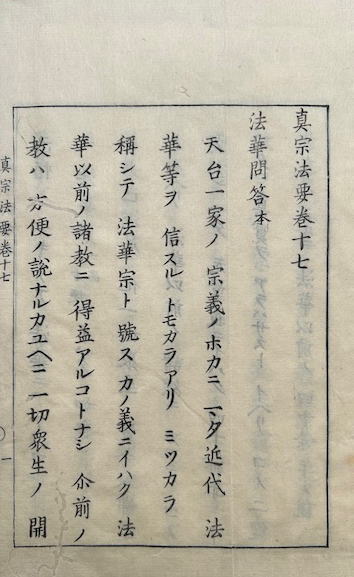 真宗法要巻十七
法華問答本
天台一家ノ宗義ノホカニマタ近代法
華等ヲ信スルトモカラアリミツカラ
稱シテ法華宗ト號スカノ義ニイハク法
華以前ノ諸教ニ得益アルコトナシ尒前ノ
教ハ方便ノ説ナルカユヘニ一切衆生ノ開
真宗法要巻十七
一